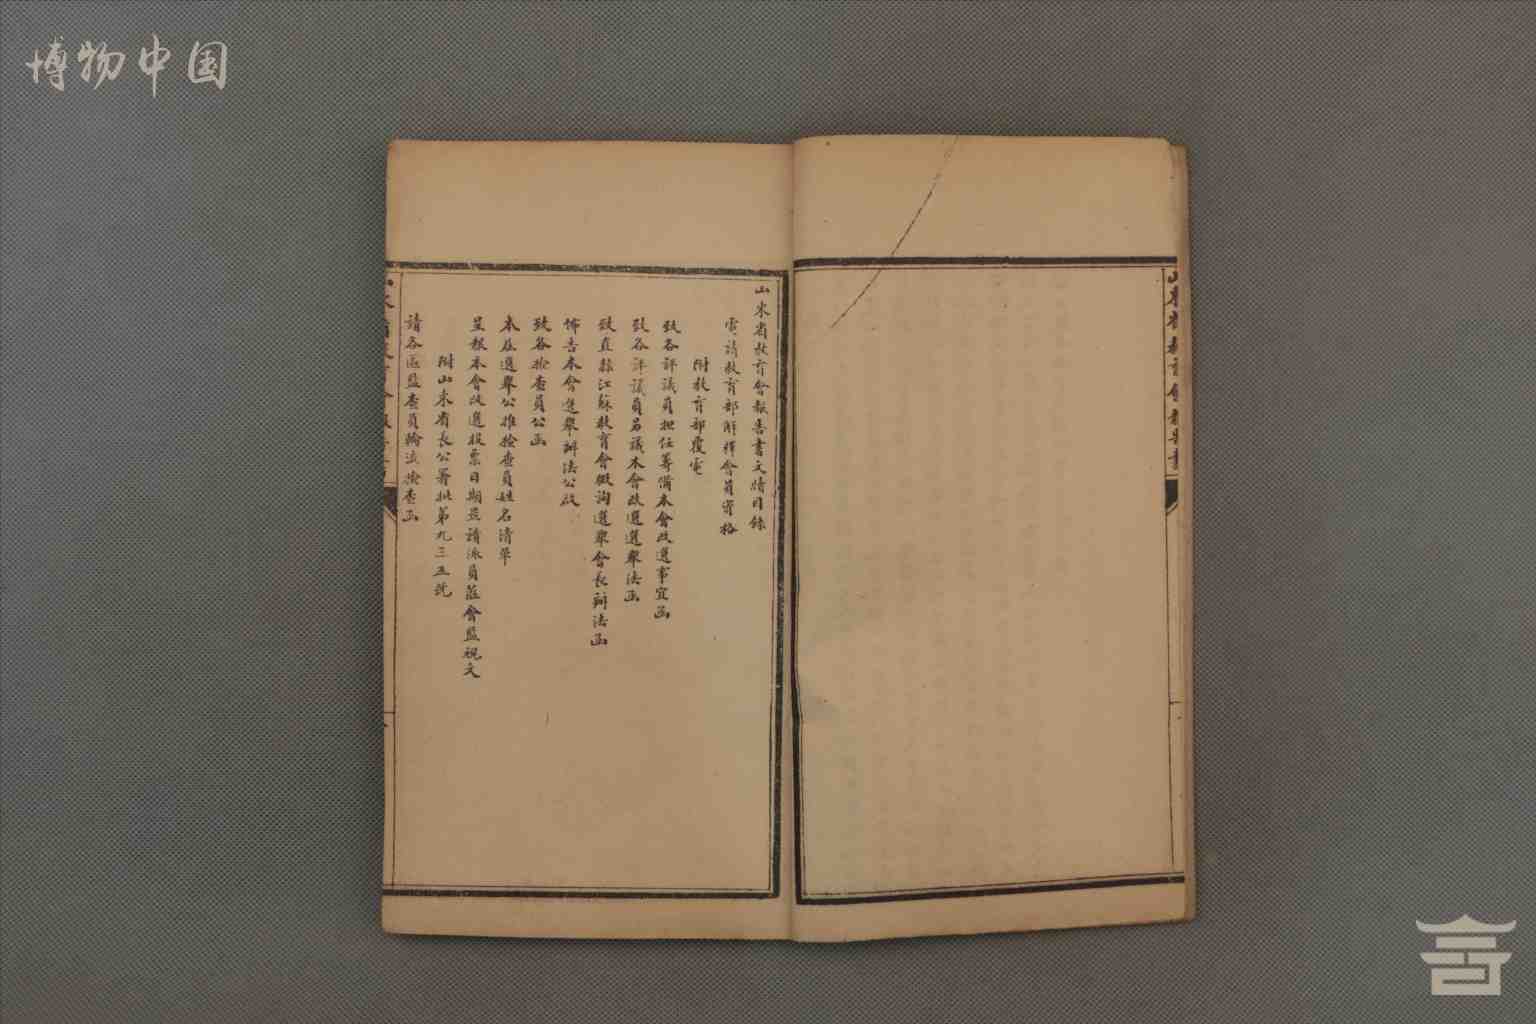 博物中国
山東省教育會報告書
山東省教育會報告書文牘目錄
電請教育部解釋會員資格
附教育部覆電
致各評議員担任籌備本會改選事宜函
致各評議員另議本會改選選舉法函
致直隸江蘇教育會徵詢選舉會長辦法函
佈告本會選舉辦法公啟
致各檢查員公函
本屆選舉公推檢查員姓名清單
呈報本會改選投票日期並請派員蒞會監視文
附山東省長公署批第九三五號
請各區監查員輪流檢查函